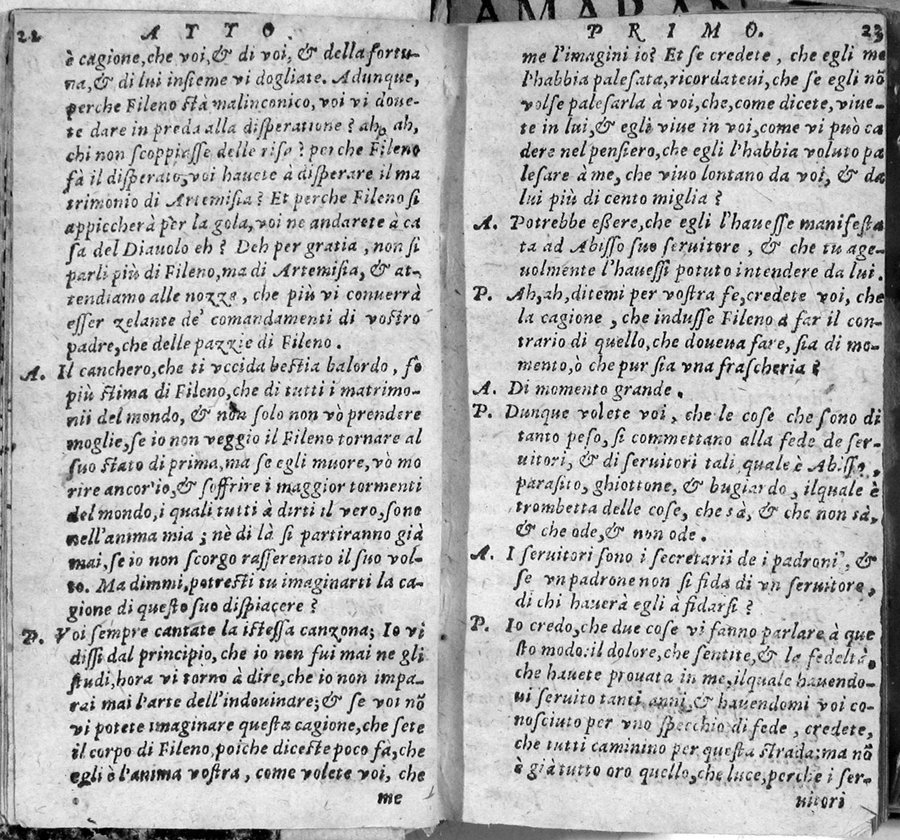 AMARAN
22 ATTO.
è cagione, che voi, & di voi, & della fortu-
na, & di lui insieme vi dogliate. Adunque,
perche Fileno stà malinconico, voi vi doue-
te dare in preda alla disperatione? ah, ah,
chi non scoppiasse delle risa? perche Fileno
fà il disperato, voi hauete à disperare il ma
trimonio di Artemisia? Et perche Fileno si
appiccherà per la gola, voi ne andarete à ca
sa del Diauolo eh? Deh per gratia, non si
parli più di Fileno, ma di Artemisia, & at-
tendiamo alle nozze, che più vi conuerrà
esser zelante de' comandamenti di vostro
padre, che delle pazzie di Fileno.
A. Il canchero, che ti vccida bestia balordo, fo
più stima di Fileno, che di tutti i matrimo-
nii del mondo, & non solo non vò prendere
moglie, se io non veggio il Fileno tornare al
suo stato di prima, ma se egli muore, vò mo
rire ancor'io, & soffrire i maggior tormenti
del mondo, i quali tutti à dirti il vero, sono
nell'anima mia; nè di là si partiranno già
mai, se io non scorgo rasserenato il suo vol-
to. Ma dimmi, potresti tu imaginarti la ca-
gione di questo suo dispiacere?
P. Voi sempre cantate la istessa canzona; Io vi
dissi dal principio, che io non fui mai ne gli
studi, hora vi torno à dire, che io non impa-
rai mai l'arte dell'indouinare; & se voi nõ
vi potete imaginare questa cagione, che sete
il corpo di Fileno, poiche diceste poco fà, che
egli è l'anima vostra, come volete voi, che
me
PRIMO. 23
me l'imagini io? Et se credete, che egli me
l'habbia palesata, ricordateui, che se egli nõ
volse palesarla à voi, che, come dicete, viue-
te in lui, & egli viue in voi, come vi può ca
dere nel pensiero, che egli l'habbia voluto pa
lesare à me, che viuo lontano da voi, & da
lui più di cento miglia?
A. Potrebbe eßere, che egli l'hauesse manifesta
ta ad Abisso suo seruitore, & che tu age-
uolmente l'hauessi potuto intendere da lui.
P. Ah, ah, ditemi per vostra fe, credete voi, che
la cagione, che indusse Fileno à far il con-
trario di quello, che doueua fare, sia di mo-
mento, ò che pur sia vna frascheria?
A. Di momento grande.
P. Dunque volete voi, che le cose che sono di
tanto peso, si commettano alla fede de ser-
uitori, & di seruitori tali quale è Abisso,
parasito, ghiottone, & bugiardo, ilquale è
trombetta delle cose, che sà, & che non sà,
& che ode, & non ode.
A. I seruitori sono i secretarii de i padroni, &
se vn padrone non si fida di vn seruitore,
di chi hauerà egli à fidarsi?
P. Io credo, che due cose vi fanno parlare à que
sto modo: il dolore, che sentite, & la fedeltà,
che hauete prouata in me, ilquale hauendo-
ui seruito tanti anni, & hauendomi voi co-
nosciuto per vno specchio di fede, credete,
che tutti caminino per questa strada: ma nõ
è già tutto oro quello, che luce, perche i ser-
uitori